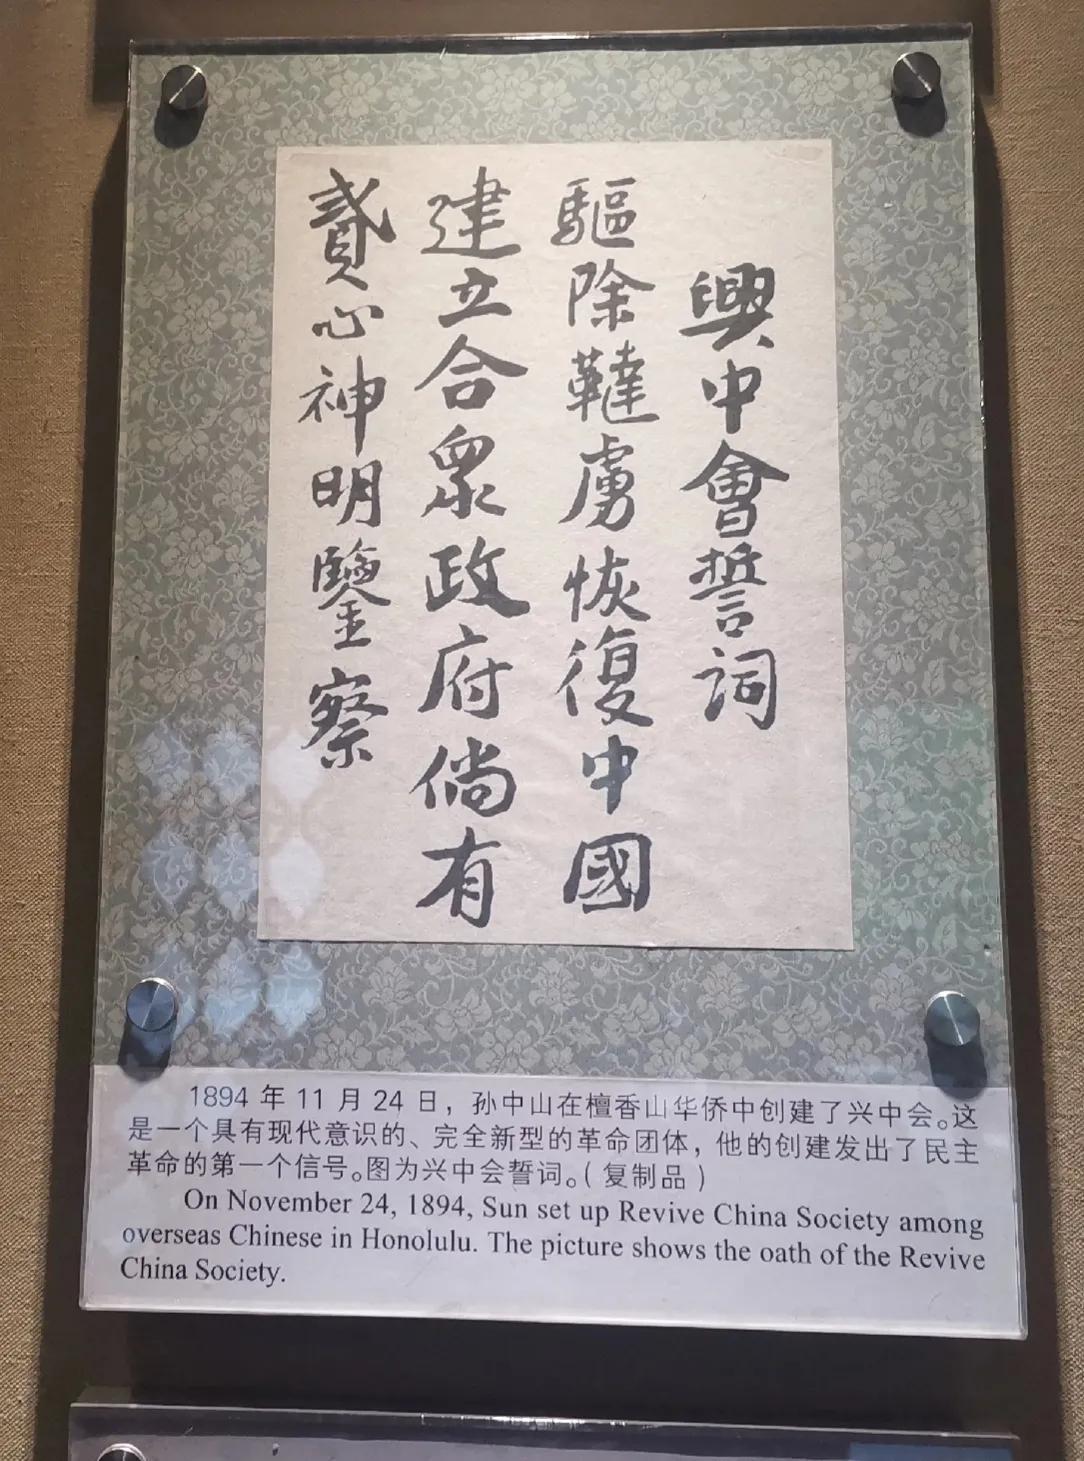 興中會誓詞
驅除韃虜恢復中國
建立合衆政府倘有
貳心神明鑒察
1894 年 11 月 24 日，孙中山在檀香山华侨中创建了兴中会。这
是一个具有现代意识的、完全新型的革命团体，他的创建发出了民主
革命的第一个信号。图为兴中会誓词。（复制品）
On November 24, 1894, Sun set up Revive China Society among
overseas Chinese in Honolulu. The picture shows the oath of the Revive
China Society.